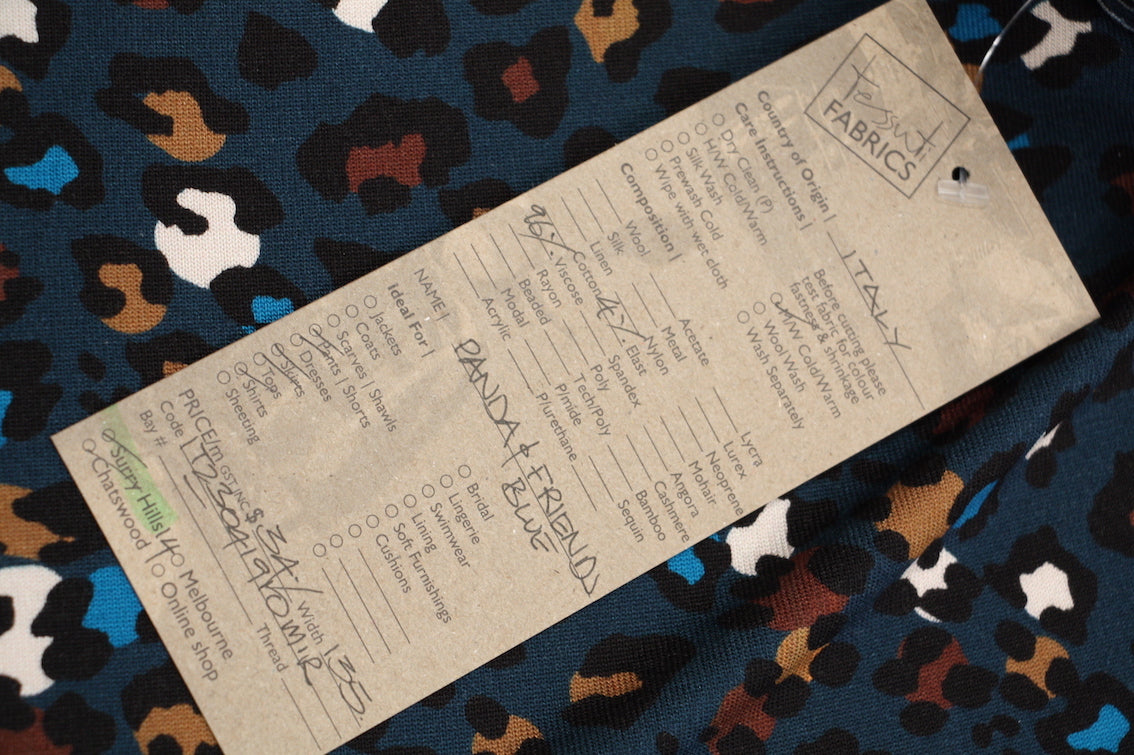 Tessuti
FABRICS
Country of Origin | ITALY
Care Instructions |
Dry Clean (P)
H/W Cold/Warm
Silk Wash
Prewash Cold
Wipe with wet cloth
Before cutting please
test fabric for colour
fastness & shrinkage
H/W Cold/Warm
Wool Wash
Wash Separately
Composition |
Wool
Silk
Linen
Cotton
96% Viscose
Rayon
Beaded
Modal
Acrylic
Acetate
Metal
Nylon
4% Elast
Spandex
Poly
Tech/Poly
P/mide
P/urethane
Lycra
Lurex
Neoprene
Mohair
Angora
Cashmere
Bamboo
Sequin
NAME | PANDA & FRIENDS
BLUE
Ideal For |
Jackets
Coats
Scarves | Shawls
Pants | Shorts
Dresses
Skirts
Tops
Shirts
Sheeting
Bridal
Lingerie
Swimwear
Lining
Soft Furnishings
Cushions
PRICE/m GST INC $ 34. Width 135.
Code
Bay #
Thread
Surry Hills
Melbourne
Chatswood
Online shop